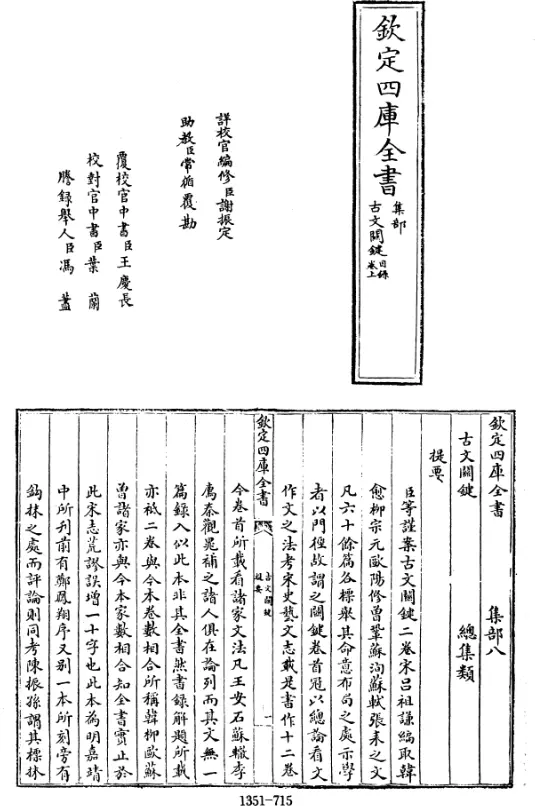 欽定四庫全書
集部
古文關鍵
目錄
卷上
詳校官編修臣謝振定
助教臣常循覆勘
覆校官中書臣王慶長
校對官中書臣葉蘭
謄錄舉人臣馮藎
欽定四庫全書 集部八
古文關鍵 總集類
提要
臣等謹案古文關鍵二卷宋呂祖謙編取韓
愈柳宗元歐陽修曾鞏蘇洵蘇軾張耒之文
凡六十餘篇各標舉其命意布局之處示學
者以門徑故謂之關鍵卷首冠以總論看文
作文之法考宋史藝文志載是書作十二卷
欽定四庫全書
古文關鍵
提要
一
今卷首所載看諸家文法凡王安石蘇轍李
廌秦觀晁補之諸人俱在論列而其文無一
篇錄入似此本非其全書然書錄解題所載
亦祗二卷與今本卷數相合所稱韓柳歐蘇
曾諸家亦與今本家數相合知全書實止於
此宋志荒謬誤增一十字也此本為明嘉靖
中所刊前有鄭鳳翔序又别一本所刻旁有
鈎抹之處而評論則同考陳振孫謂其標抹
1351-715